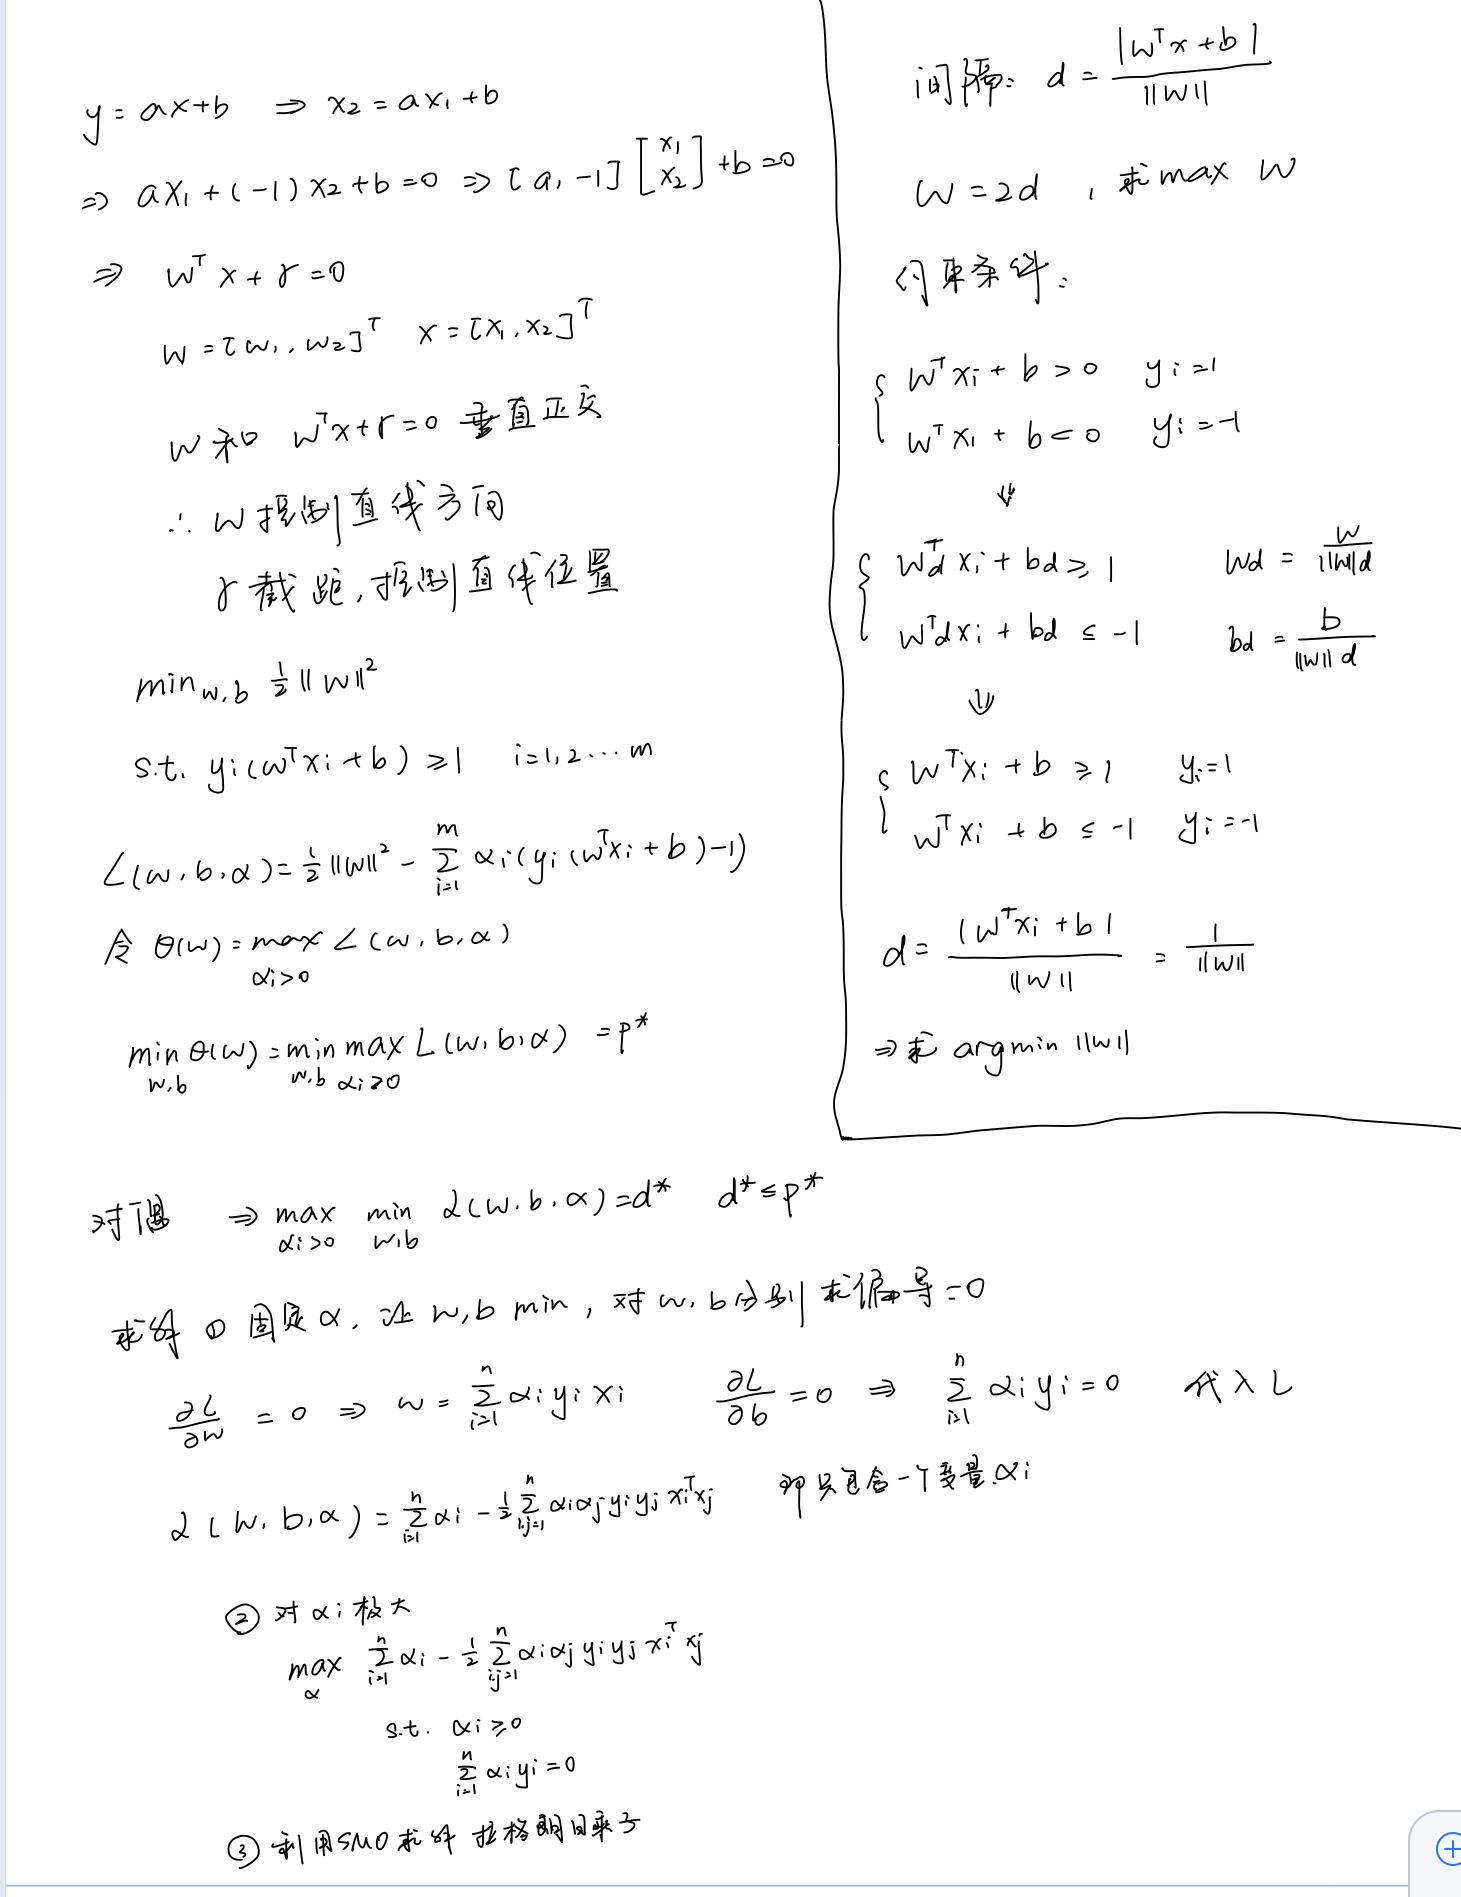 y = ax+b ⇒ x₂ = ax₁+b
⇒ ax₁ + (-1) x₂ + b = 0 ⇒ [a, -1] [x₁ x₂] + b = 0
⇒ wᵀx + γ = 0
w = [w₁, w₂]ᵀ x = [x₁, x₂]ᵀ
w 和 wᵀx+γ=0 垂直正交
∴ w 控制直线方向
γ 截距, 控制直线位置
min w,b ½ ||w||²
s.t. yi(wᵀxi + b) ≥ 1 i=1,2…m
L(w, b, α) = ½||w||² - Σ_{i=1}^{m} αi(yi(wᵀxi + b) - 1)
令 θ(w) = max_{αi>0} L(w, b, α)
min_{w,b} θ(w) = min_{w,b} max_{αi≥0} L(w, b, α) = p*
间隔: d = |wᵀx + b| / ||w||
W = 2d , 求 max W
约束条件:
{ wᵀxi + b > 0 yi = 1
wᵀxi + b < 0 yi = -1
⇓
{ wᵀd xi + bd ≥ 1 wd = w / ||w||d
wᵀd xi + bd ≤ -1 bd = b / ||w|| d
⇓
{ wᵀxi + b ≥ 1 yi = 1
wᵀxi + b ≤ -1 yi = -1
d = |wᵀxi + b| / ||w|| = 1 / ||w||
⇒ 求 argmin ||w||
对偶 ⇒ max_{αi>0} min_{w,b} L(w, b, α) = d* d* ≤ p*
求解 ① 固定 α, 让 w,b min, 对 w, b 分别求偏导=0
∂L/∂w = 0 ⇒ w = Σ_{i=1}^{n} αi yi xi ∂L/∂b = 0 ⇒ Σ_{i=1}^{n} αi yi = 0 代入 L
L(w, b, α) = Σ_{i=1}^{n} αi - ½ Σ_{i,j=1}^{n} αiαj yiyj xiᵀxj 即只包含一个变量 αi
② 对 αi 极大
max_α Σ_{i=1}^{n} αi - ½ Σ_{i,j=1}^{n} αiαj yiyj xiᵀxj
s.t. αi ≥ 0
Σ_{i=1}^{n} αi yi = 0
③ 利用SMO求解 拉格朗日乘子